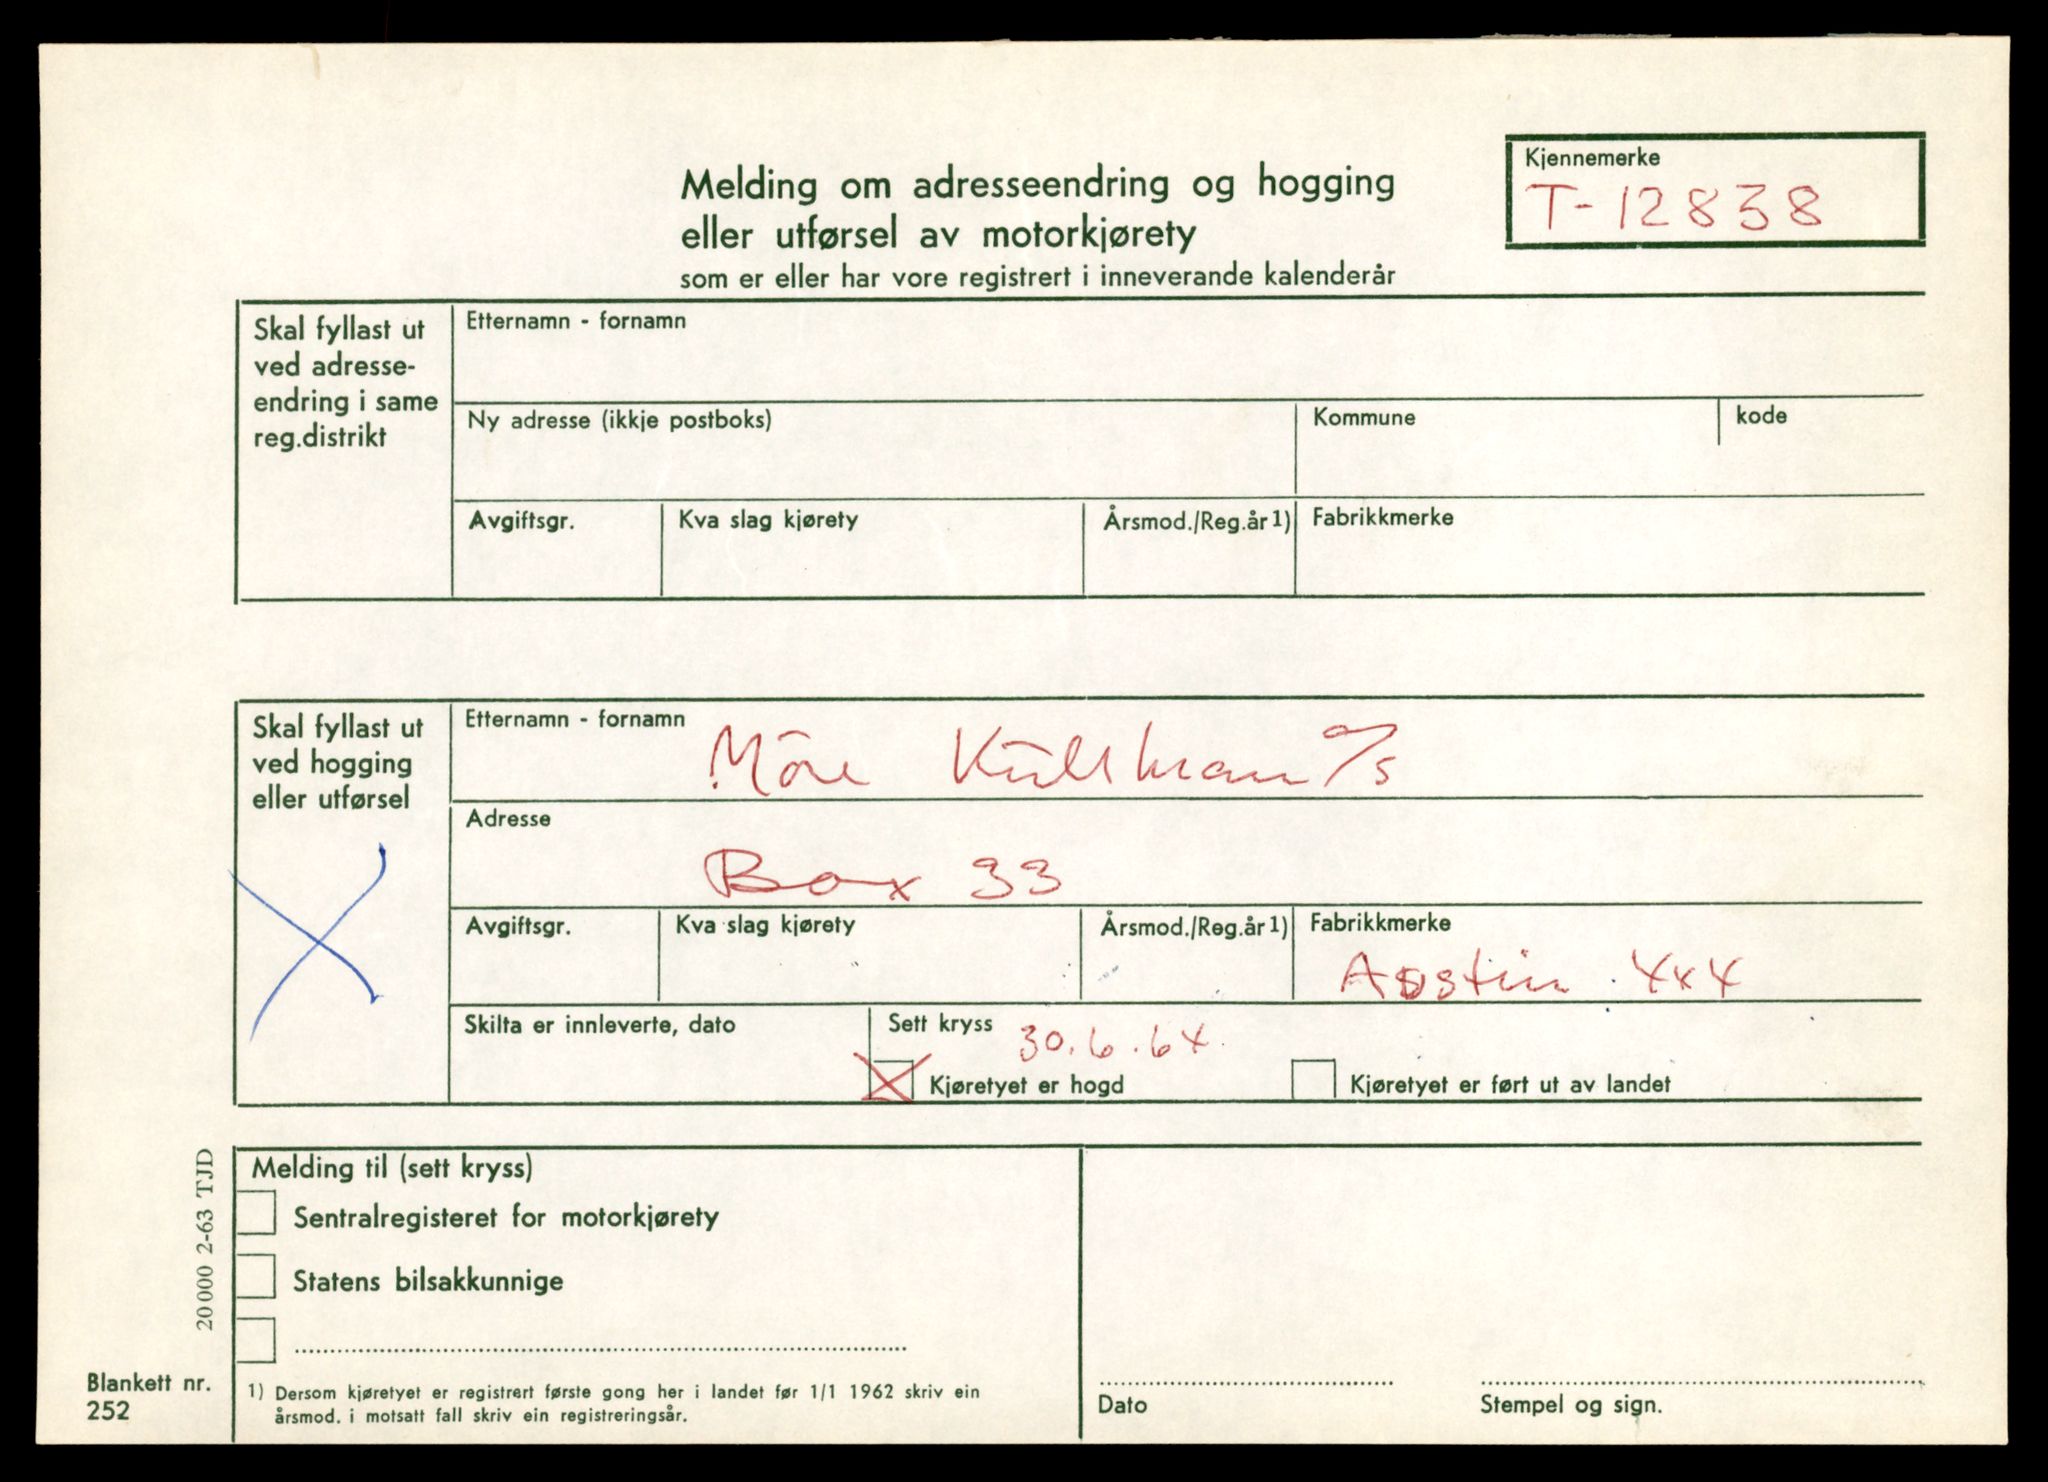 Kjennemerke
T-12838
Melding om adresseendring og hogging
eller utførsel av motorkjørety
som er eller har vore registrert i inneverande kalenderår
Skal fyllast ut
ved adresse-
endring i same
reg.distrikt
Etternamn - fornamn
Ny adresse (ikkje postboks)
Kommune
kode
Avgiftsgr.
Kva slag kjørety
Årsmod./Reg.år 1)
Fabrikkmerke
Skal fyllast ut
ved hogging
eller utførsel
Etternamn - fornamn
Möre a/s
Adresse
Box 33
Avgiftsgr.
Kva slag kjørety
Årsmod./Reg.år 1)
Fabrikkmerke
Austin 4x4
Skilta er innleverte, dato
Sett kryss
30.6.64
Kjøretyet er hogd
Kjøretyet er ført ut av landet
Melding til (sett kryss)
Sentralregisteret for motorkjørety
Statens bilsakkunnige
20000 2-63 TJD
Blankett nr.
252
1) Dersom kjøretyet er registrert første gong her i landet før 1/1 1962 skriv ein
årsmod. i motsatt fall skriv ein registreringsår.
Dato
Stempel og sign.